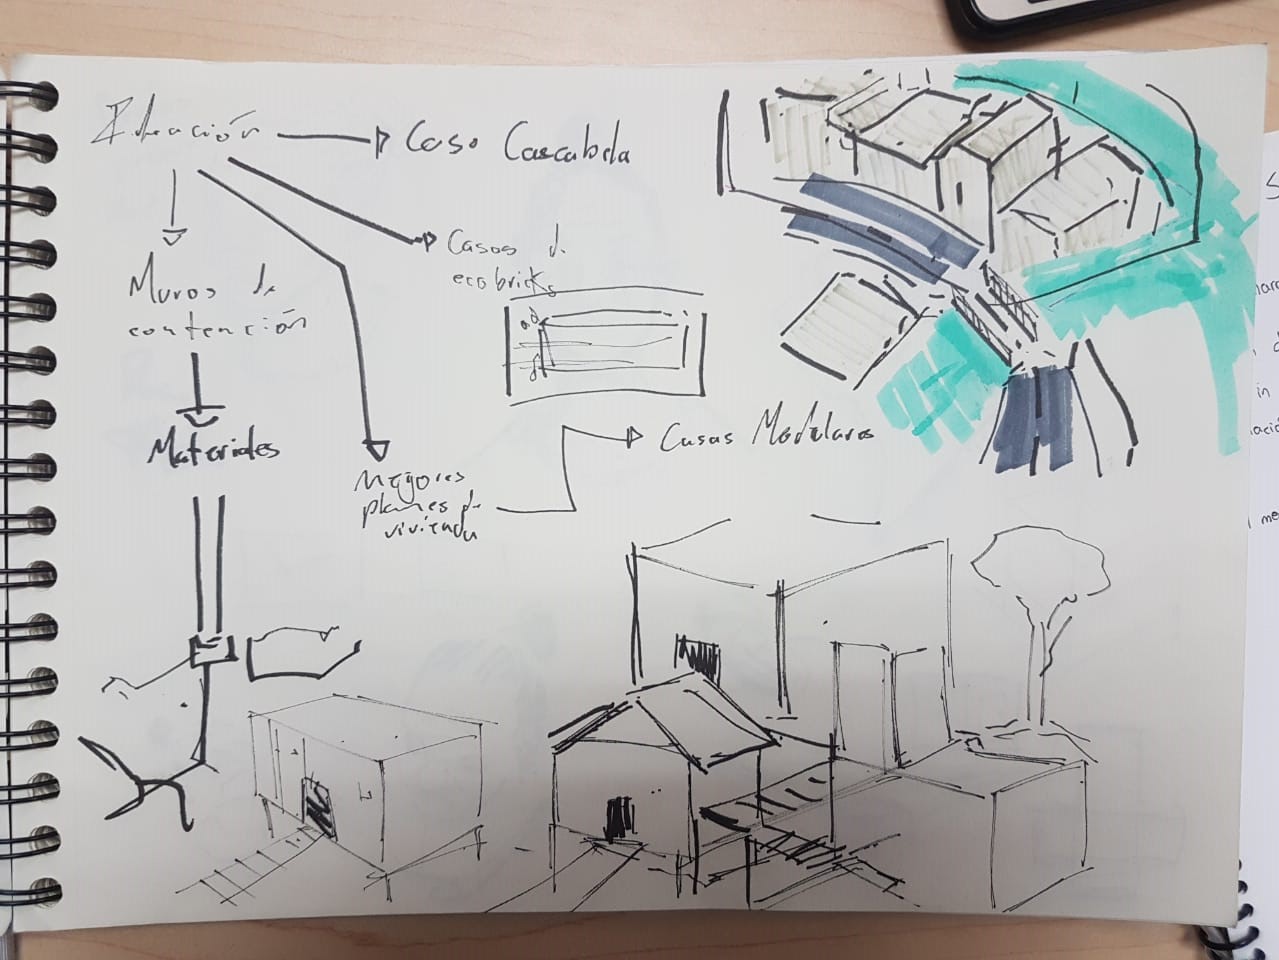 Ideación
Caso Cascabela
Casas de
ecobricks
Muros de
contención
Materiales
Mejores
planes de
vivienda
Casas Modulares
in